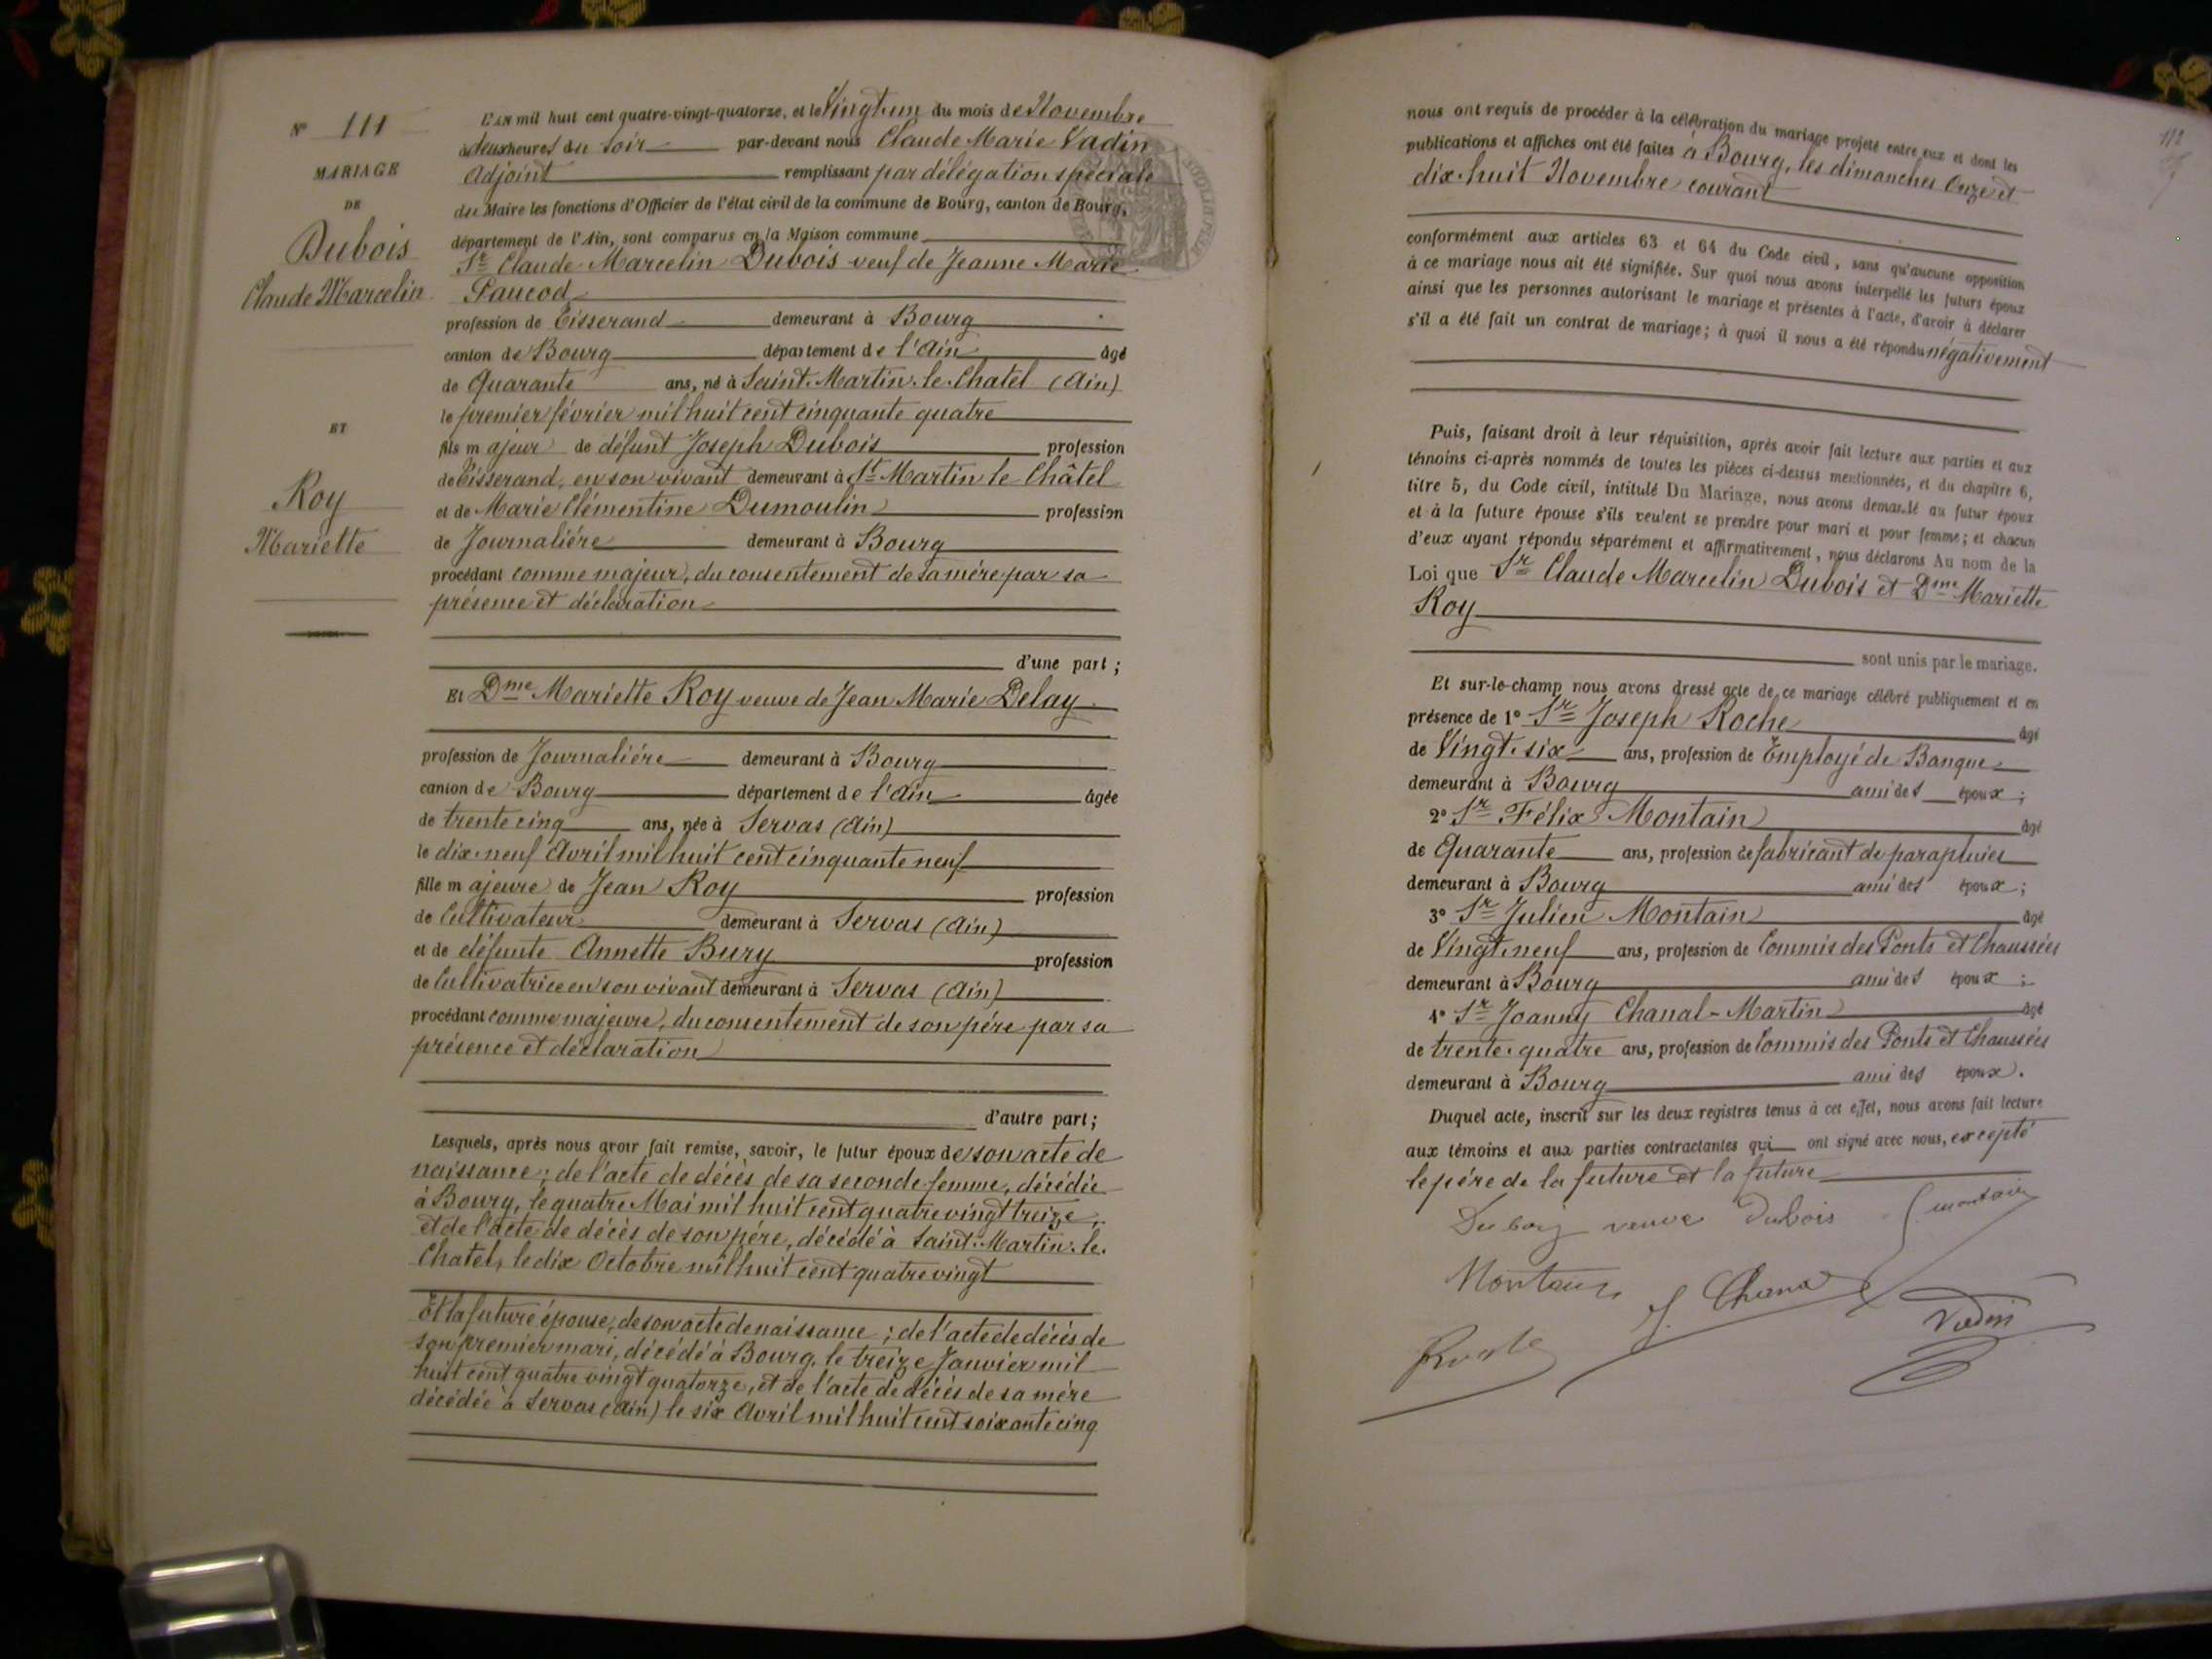 N° 111
MARIAGE
DE
Dubois
Claude Marcelin
ET
Roy
Mariette
L'AN mil huit cent quatre-vingt-quatorze, et le Vingt un du mois de Novembre
à deux heures du soir par-devant nous Claude Marie Vadin
Adjoint remplissant par délégation spéciale
du Maire les fonctions d'Officier de l'état civil de la commune de Bourg, canton de Bourg,
département de l'Ain, sont comparus en la Maison commune
Sr Claude Marcelin Dubois veuf de Jeanne Marie
Paucod
profession de Tisserand demeurant à Bourg
canton de Bourg département de l'Ain âgé
de Quarante ans, né à Saint-Martin-le-Chatel (Ain)
le premier février mil huit cent cinquante quatre
fils majeur de défunt Joseph Dubois profession
de Tisserand, en son vivant demeurant à St Martin le Châtel
et de Marie Clémentine Dumoulin profession
de Journalière demeurant à Bourg
procédant comme majeur, du consentement de sa mère par sa
présence et déclaration
d'une part ;
Et Dme Mariette Roy veuve de Jean Marie Delay
profession de Journalière demeurant à Bourg
canton de Bourg département de l'Ain âgée
de trente cinq ans, née à Servas (Ain)
le dix-neuf Avril mil huit cent cinquante neuf
fille majeure de Jean Roy profession
de Cultivateur demeurant à Servas (Ain)
et de défunte Annette Bury profession
de Cultivatrice en son vivant demeurant à Servas (Ain)
procédant comme majeure, du consentement de son père par sa
présence et déclaration
d'autre part ;
Lesquels, après nous avoir fait remise, savoir, le futur époux de son acte de
naissance ; de l'acte de décès de sa seconde femme, décédée
à Bourg, le quatre Mai mil huit cent quatre vingt treize,
et de l'acte de décès de son père, décédé à Saint-Martin-le-
Chatel, le dix Octobre mil huit cent quatre vingt
Et la future épouse, de son acte de naissance ; de l'acte de décès de
son premier mari, décédé à Bourg, le treize Janvier mil
huit cent quatre vingt quatorze, et de l'acte de décès de sa mère
décédée à Servas (Ain) le six Avril mil huit cent soixante cinq
112
nous ont requis de procéder à la célébration du mariage projeté entre eux et dont les
publications et affiches ont été faites à Bourg, les dimanches Onze et
dix-huit Novembre courant
conformément aux articles 63 et 64 du Code civil, sans qu'aucune opposition
à ce mariage nous ait été signifiée. Sur quoi nous avons interpellé les futurs époux
ainsi que les personnes autorisant le mariage et présentes à l'acte, d'avoir à déclarer
s'il a été fait un contrat de mariage ; à quoi il nous a été répondu négativement
Puis, faisant droit à leur réquisition, après avoir fait lecture aux parties et aux
témoins ci-après nommés de toutes les pièces ci-dessus mentionnées, et du chapitre 6,
titre 5, du Code civil, intitulé Du Mariage, nous avons demandé au futur époux
et à la future épouse s'ils veulent se prendre pour mari et pour femme ; et chacun
d'eux ayant répondu séparément et affirmativement, nous déclarons Au nom de la
Loi que Sr Claude Marcelin Dubois et Dme Mariette
Roy
sont unis par le mariage.
Et sur-le-champ nous avons dressé acte de ce mariage célébré publiquement et en
présence de 1° Sr Joseph Roche âgé
de Vingt-six ans, profession de Employé de Banque
demeurant à Bourg ami des époux ;
2° Sr Félix Montain âgé
de Quarante ans, profession de fabricant de parapluies
demeurant à Bourg ami des époux ;
3° Sr Julien Montain âgé
de Vingt-neuf ans, profession de Commis des Ponts et Chaussées
demeurant à Bourg ami des époux ;
4° Sr Joanny Chanal-Martin âgé
de trente-quatre ans, profession de Commis des Ponts et Chaussées
demeurant à Bourg ami des époux.
Duquel acte, inscrit sur les deux registres tenus à cet effet, nous avons fait lecture
aux témoins et aux parties contractantes qui ont signé avec nous, excepté
le père de la future et la future
Duboiz veuve Dubois montain
Montain J. Chanal
Vadin
Roche